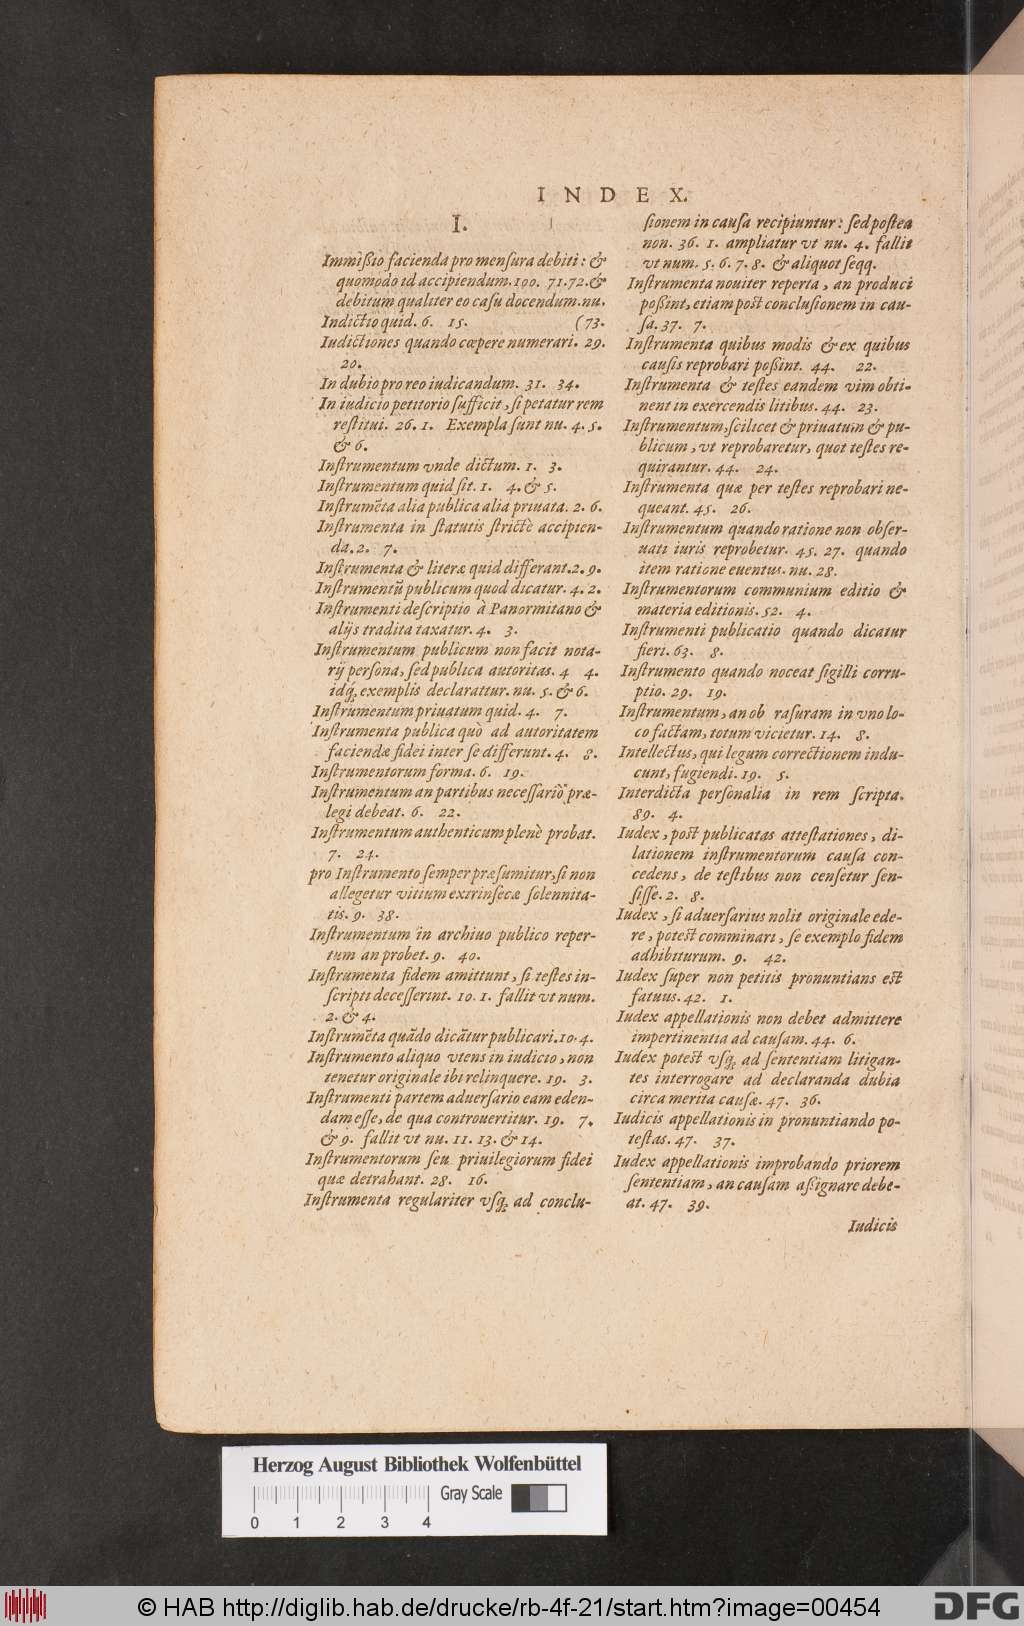 INDEX.
I.
Immißio facienda pro mensura debiti: &
quomodo id accipiendum. 190. 71. 72. &
debitum qualiter eo casu docendum. nu.
Indictio quid. 6. 15. (73.
Iudictiones quando cœpere numerari. 29.
20.
In dubio pro reo iudicandum. 31. 34.
In iudicio petitorio sufficit, si petatur rem
restitui. 26. 1. Exempla sunt nu. 4. 5.
& 6.
Instrumentum vnde dictum. 1. 3.
Instrumentum quid sit. 1. 4. & 5.
Instrumēta alia publica alia priuata. 2. 6.
Instrumenta in statutis strictè accipien-
da. 2. 7.
Instrumenta & literæ quid differant. 2. 9.
Instrumentū publicum quod dicatur. 4. 2.
Instrumenti descriptio à Panormitano &
alijs tradita taxatur. 4. 3.
Instrumentum publicum non facit nota-
rij persona, sed publica autoritas. 4 4.
idq́; exemplis declarattur. nu. 5. & 6.
Instrumentum priuatum quid. 4. 7.
Instrumenta publica quò ad autoritatem
faciendæ fidei inter se differunt. 4. 8.
Instrumentorum forma. 6. 19.
Instrumentum an partibus necessariò præ-
legi debeat. 6. 22.
Instrumentum authenticum plenè probat.
7. 24.
pro Instrumento semper præsumitur, si non
allegetur vitium extrinsecæ solennita-
tis. 9. 38.
Instrumentum in archiuo publico reper-
tum an probet. 9. 40.
Instrumenta fidem amittunt, si testes in-
scripti decesserint. 10. 1. fallit vt num.
2. & 4.
Instrumēta quādo dicātur publicari. 10. 4.
Instrumento aliquo vtens in iudicio, non
tenetur originale ibi relinquere. 19. 3.
Instrumenti partem aduersario eam eden-
dam esse, de qua controuertitur. 19. 7.
& 9. fallit vt nu. 11. 13. & 14.
Instrumentorum seu priuilegiorum fidei
quæ detrahant. 28. 16.
Instrumenta regulariter vsq; ad conclu-
sionem in causa recipiuntur: sed postea
non. 36. 1. ampliatur vt nu. 4. fallit
vt num. 5. 6. 7. 8. & aliquot seqq.
Instrumenta nouiter reperta, an produci
poßint, etiam post conclusionem in cau-
sa. 37. 7.
Instrumenta quibus modis & ex quibus
causis reprobari poßint. 44. 22.
Instrumenta & testes eandem vim obti-
nent in exercendis litibus. 44. 23.
Instrumentum, scilicet & priuatum & pu-
blicum, vt reprobaretur, quot testes re-
quirantur. 44. 24.
Instrumenta quæ per testes reprobari ne-
queant. 45. 26.
Instrumentum quando ratione non obser-
uati iuris reprobetur. 45. 27. quando
item ratione euentus. nu. 28.
Instrumentorum communium editio &
materia editionis. 52. 4.
Instrumenti publicatio quando dicatur
fieri. 63. 8.
Instrumento quando noceat sigilli corru-
ptio. 29. 19.
Instrumentum, an ob rasuram in vno lo-
co factam, totum vicietur. 14. 8.
Intellectus, qui legum correctionem indu-
cunt, fugiendi. 19. 5.
Interdicta personalia in rem scripta.
89. 4.
Iudex, post publicatas attestationes, di-
lationem instrumentorum causa con-
cedens, de testibus non censetur sen-
sisse. 2. 8.
Iudex, si aduersarius nolit originale ede-
re, potest comminari, se exemplo fidem
adhibiturum. 9. 42.
Iudex super non petitis pronuntians est
fatuus. 42. 1.
Iudex appellationis non debet admittere
impertinentia ad causam. 44. 6.
Iudex potest vsq; ad sententiam litigan-
tes interrogare ad declaranda dubia
circa merita causæ. 47. 36.
Iudicis appellationis in pronuntiando po-
testas. 47. 37.
Iudex appellationis improbando priorem
sententiam, an causam aßignare debe-
at. 47. 39.
Iudicis
Herzog August Bibliothek Wolfenbüttel
Gray Scale
0 1 2 3 4
© HAB http://diglib.hab.de/drucke/rb-4f-21/start.htm?image=00454
DFG